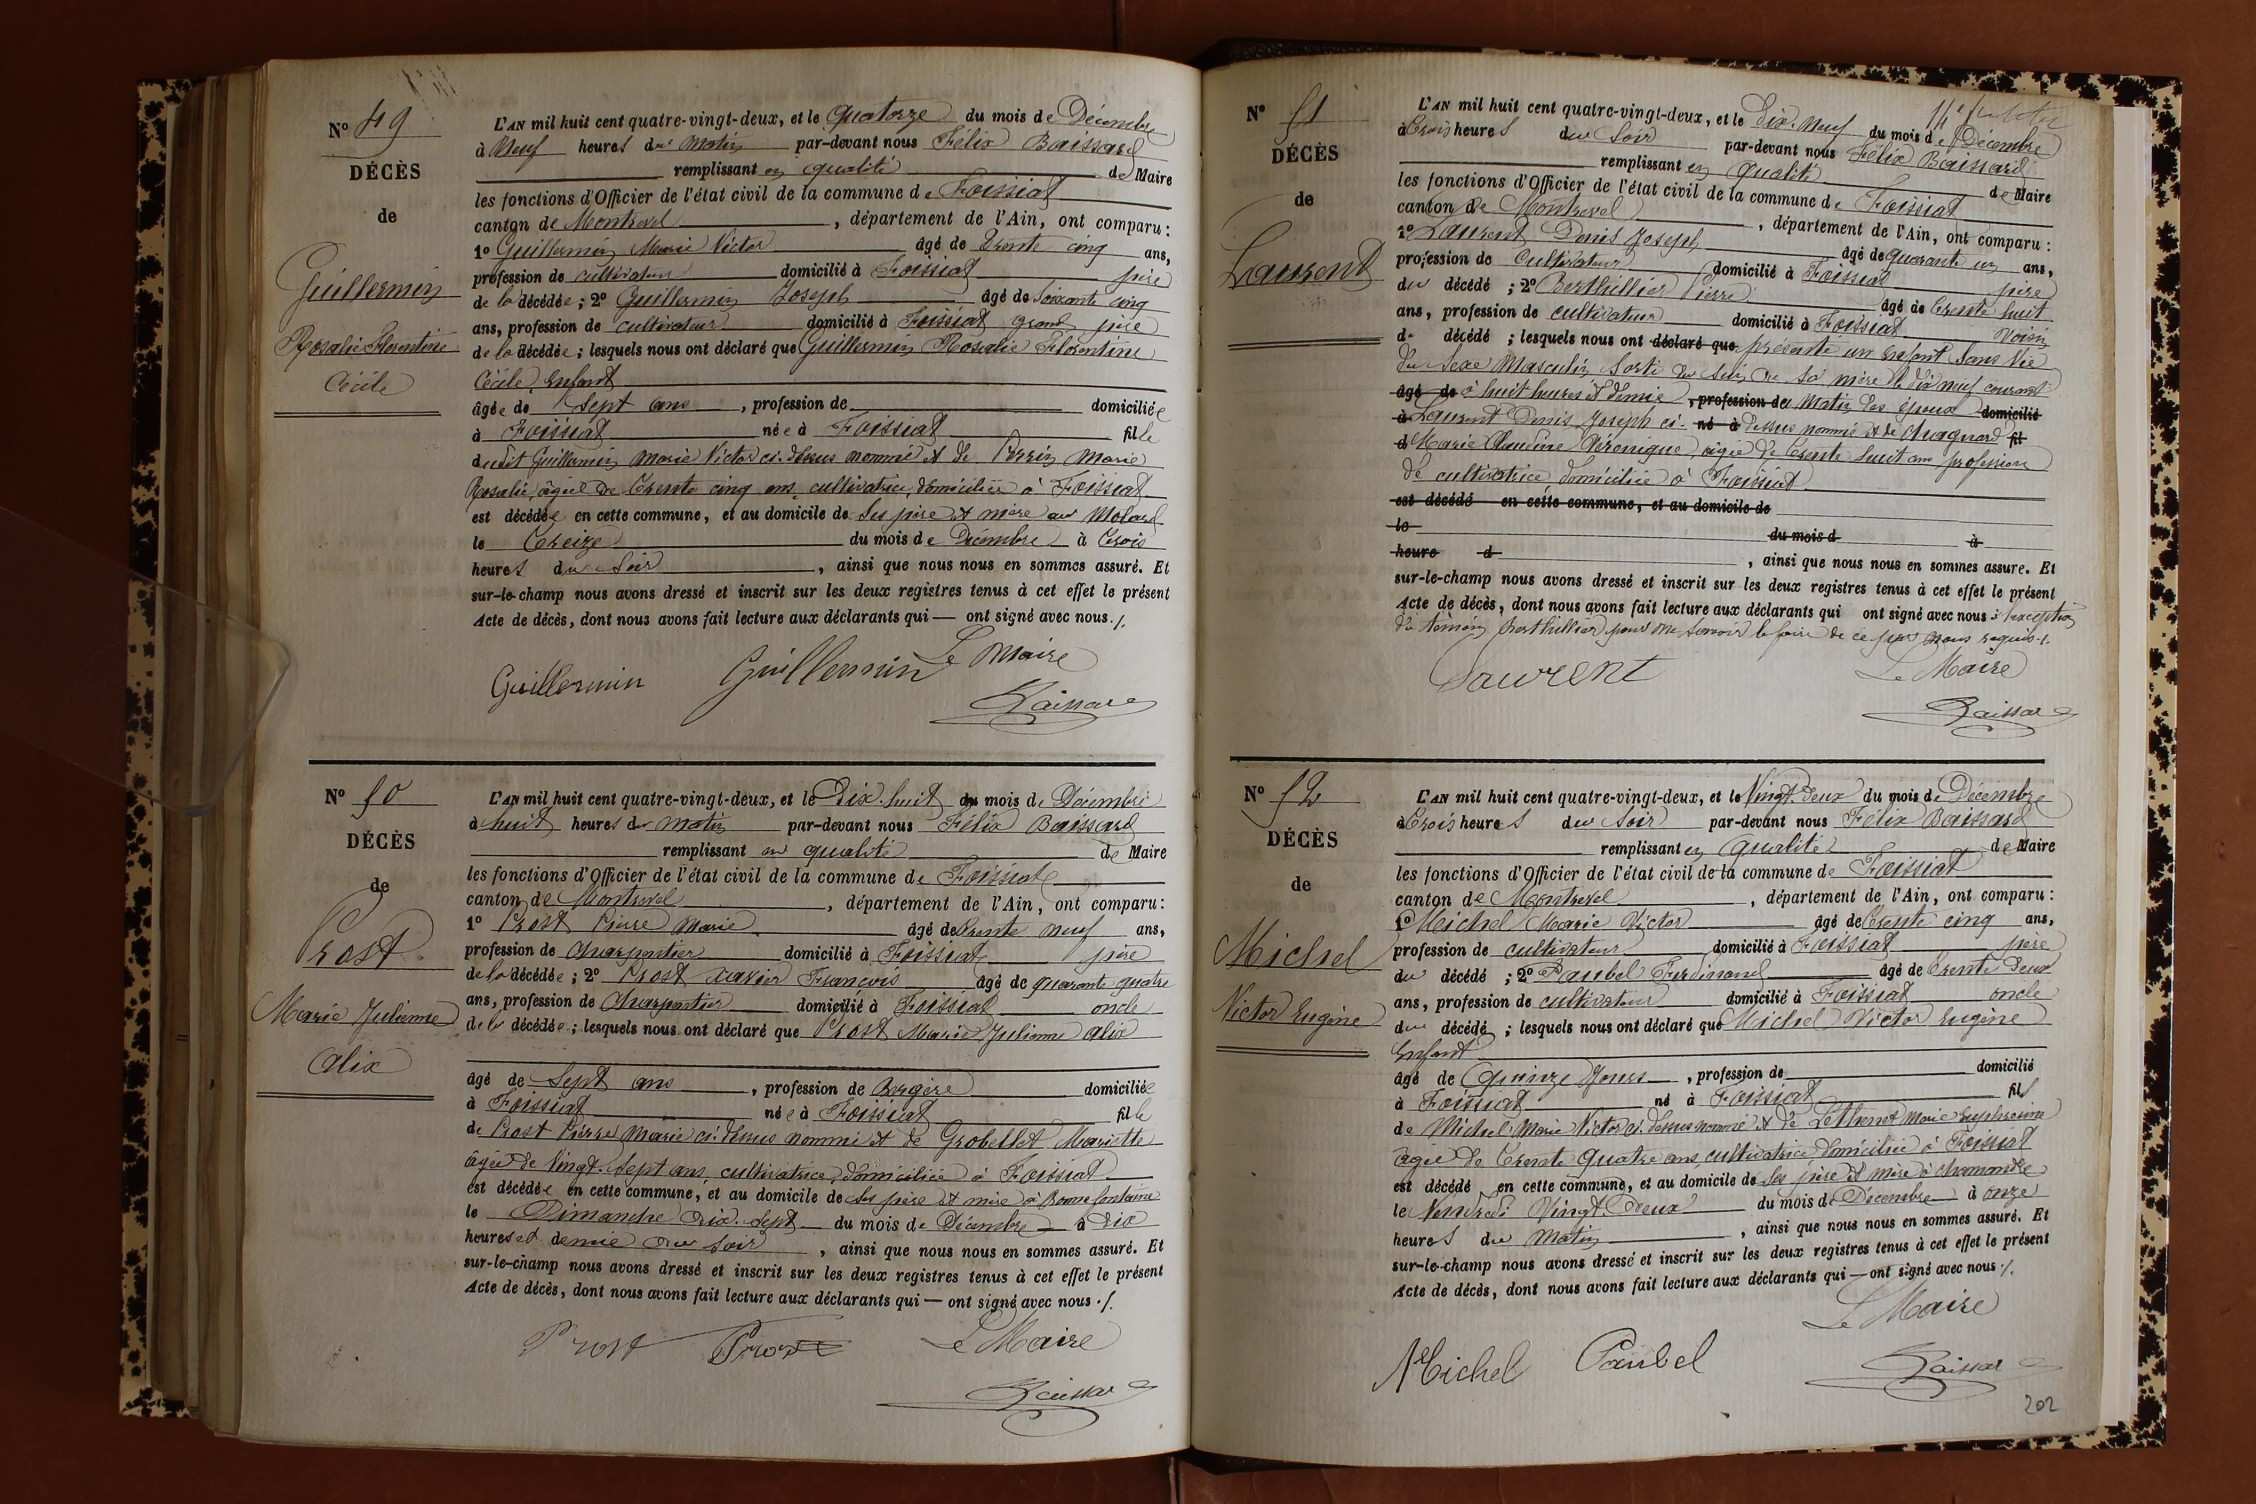 N° 49
DÉCÈS
de
Guillermin
Rosalie Florentine
Cécile
L'AN mil huit cent quatre-vingt-deux, et le quatorze du mois de Décembre
à Neuf heures du Matin par-devant nous Félix Baissard
remplissant en qualité de Maire
les fonctions d'Officier de l'état civil de la commune de Foissiat
canton de Montrevel, département de l'Ain, ont comparu :
1° Guillermin Marie Victor âgé de trente cinq ans,
profession de cultivateur domicilié à Foissiat père
de la décédée ; 2° Guillermin Joseph âgé de soixante cinq
ans, profession de cultivateur domicilié à Foissiat grand père
de la décédée ; lesquels nous ont déclaré que Guillermin Rosalie Florentine
Cécile Enfant
âgée de Sept ans, profession de domiciliée
à Foissiat née à Foissiat fille
dudit Guillermin Marie Victor ci-dessus nommé et de Perrin Marie
Rosalie, âgée de trente cinq ans, cultivatrice, domiciliée à Foissiat
est décédée en cette commune, et au domicile de ses père et mère au Molard
le treize du mois de Décembre à trois
heures du soir, ainsi que nous nous en sommes assuré. Et
sur-le-champ nous avons dressé et inscrit sur les deux registres tenus à cet effet le présent
Acte de décès, dont nous avons fait lecture aux déclarants qui — ont signé avec nous ./.
Le Maire
Guillermin Guillermin
Baissard
N° 50
DÉCÈS
de
Prost
Marie Julienne
Alix
L'AN mil huit cent quatre-vingt-deux, et le Dix-huit du mois de Décembre
à huit heures du matin par-devant nous Félix Baissard
remplissant en qualité de Maire
les fonctions d'Officier de l'état civil de la commune de Foissiat
canton de Montrevel, département de l'Ain, ont comparu :
1° Prost Pierre Marie âgé de trente neuf ans,
profession de Charpentier domicilié à Foissiat père
de la décédée ; 2° Prost Xavier François âgé de quarante quatre
ans, profession de Charpentier domicilié à Foissiat oncle
de la décédée ; lesquels nous ont déclaré que Prost Marie Julienne Alix
âgé de Sept ans, profession de Bergère domiciliée
à Foissiat née à Foissiat fille
de Prost Pierre Marie ci-dessus nommé et de Grobellet Mariette
âgée de vingt-sept ans, cultivatrice, domiciliée à Foissiat
est décédée en cette commune, et au domicile de ses père et mère à Bonnefontaine
le Dimanche dix-sept du mois de Décembre à dix
heures et demie du soir, ainsi que nous nous en sommes assuré. Et
sur-le-champ nous avons dressé et inscrit sur les deux registres tenus à cet effet le présent
Acte de décès, dont nous avons fait lecture aux déclarants qui — ont signé avec nous ./.
Prost Prost Le Maire
Baissard
N° 51
DÉCÈS
de
Laurent
L'AN mil huit cent quatre-vingt-deux, et le Dix-Neuf du mois de Décembre
à trois heures du Soir par-devant nous Félix Baissard
remplissant en qualité de Maire
les fonctions d'Officier de l'état civil de la commune de Foissiat
canton de Montrevel, département de l'Ain, ont comparu :
1° Laurent Denis Joseph âgé de quarante un ans,
profession de Cultivateur domicilié à Foissiat père
du décédé ; 2° Berthillier Pierre âgé de trente huit
ans, profession de cultivateur domicilié à Foissiat voisin
d décédé ; lesquels nous ont déclaré que présenté un Enfant Sans Vie
du Sexe Masculin sorti du sein de sa mère le dix neuf courant
âgé de à huit heures et demie, profession de du matin des époux domicilié
à Laurent Denis Joseph ci- né à dessus nommé et de Chagnard fil
d Marie Claudine Véronique, âgée de trente huit ans profession
de cultivatrice domiciliée à Foissiat
est décédé en cette commune, et au domicile de
le du mois d à
heure d, ainsi que nous nous en sommes assuré. Et
sur-le-champ nous avons dressé et inscrit sur les deux registres tenus à cet effet le présent
Acte de décès, dont nous avons fait lecture aux déclarants qui ont signé avec nous à l'exception
du témoin Berthillier pour ne savoir le faire de ce par nous requis ./.
Laurent Le Maire
Baissard
N° 52
DÉCÈS
de
Michel
Victor Eugène
L'AN mil huit cent quatre-vingt-deux, et le Vingt-deux du mois de Décembre
à trois heures du Soir par-devant nous Félix Baissard
remplissant en qualité de Maire
les fonctions d'Officier de l'état civil de la commune de Foissiat
canton de Montrevel, département de l'Ain, ont comparu :
1° Michel Marie Victor âgé de trente cinq ans,
profession de cultivateur domicilié à Foissiat père
du décédé ; 2° Paubel Ferdinand âgé de trente deux
ans, profession de cultivateur domicilié à Foissiat oncle
du décédé ; lesquels nous ont déclaré que Michel Victor Eugène
Enfant
âgé de Quinze Jours, profession de domicilié
à Foissiat né à Foissiat fils
de Michel Marie Victor ci-dessus nommé et de Marie
âgée de trente quatre ans, cultivatrice domiciliée à Foissiat
est décédé en cette commune, et au domicile de ses père et mère à
le Vendredi Vingt Deux du mois de Décembre à onze
heures du Matin, ainsi que nous nous en sommes assuré. Et
sur-le-champ nous avons dressé et inscrit sur les deux registres tenus à cet effet le présent
Acte de décès, dont nous avons fait lecture aux déclarants qui — ont signé avec nous ./.
Le Maire
Michel Paubel
Baissard
202